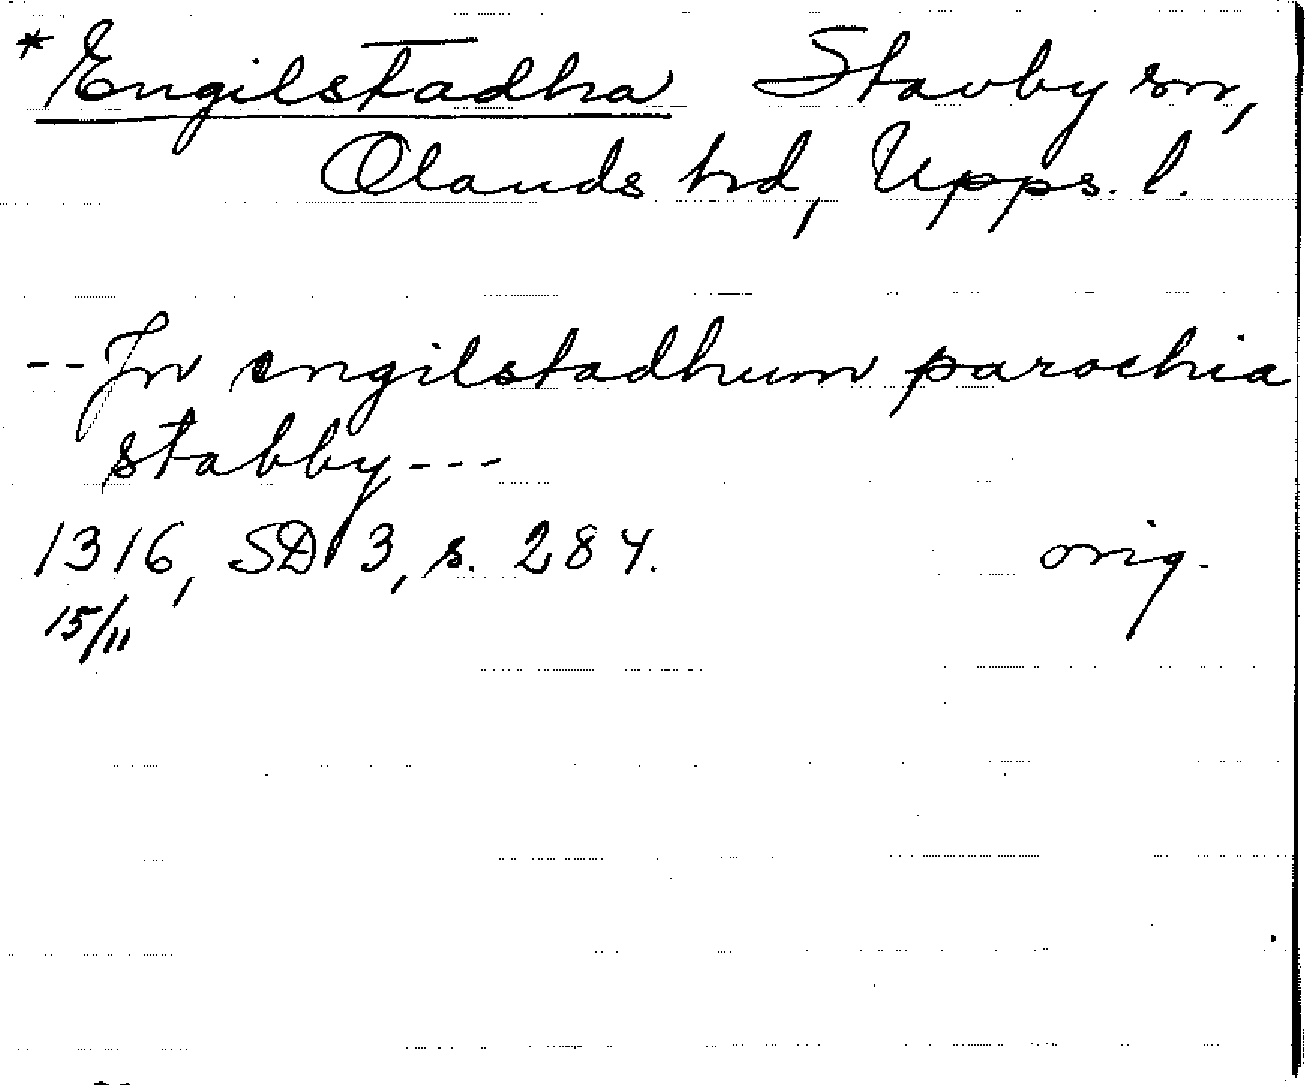 *Engilstadha Stavby sn,
Olands hd, Upps. l.
--In engilstadhum parochia
stabby---
1316, SD 3, s. 284. orig.
15/11